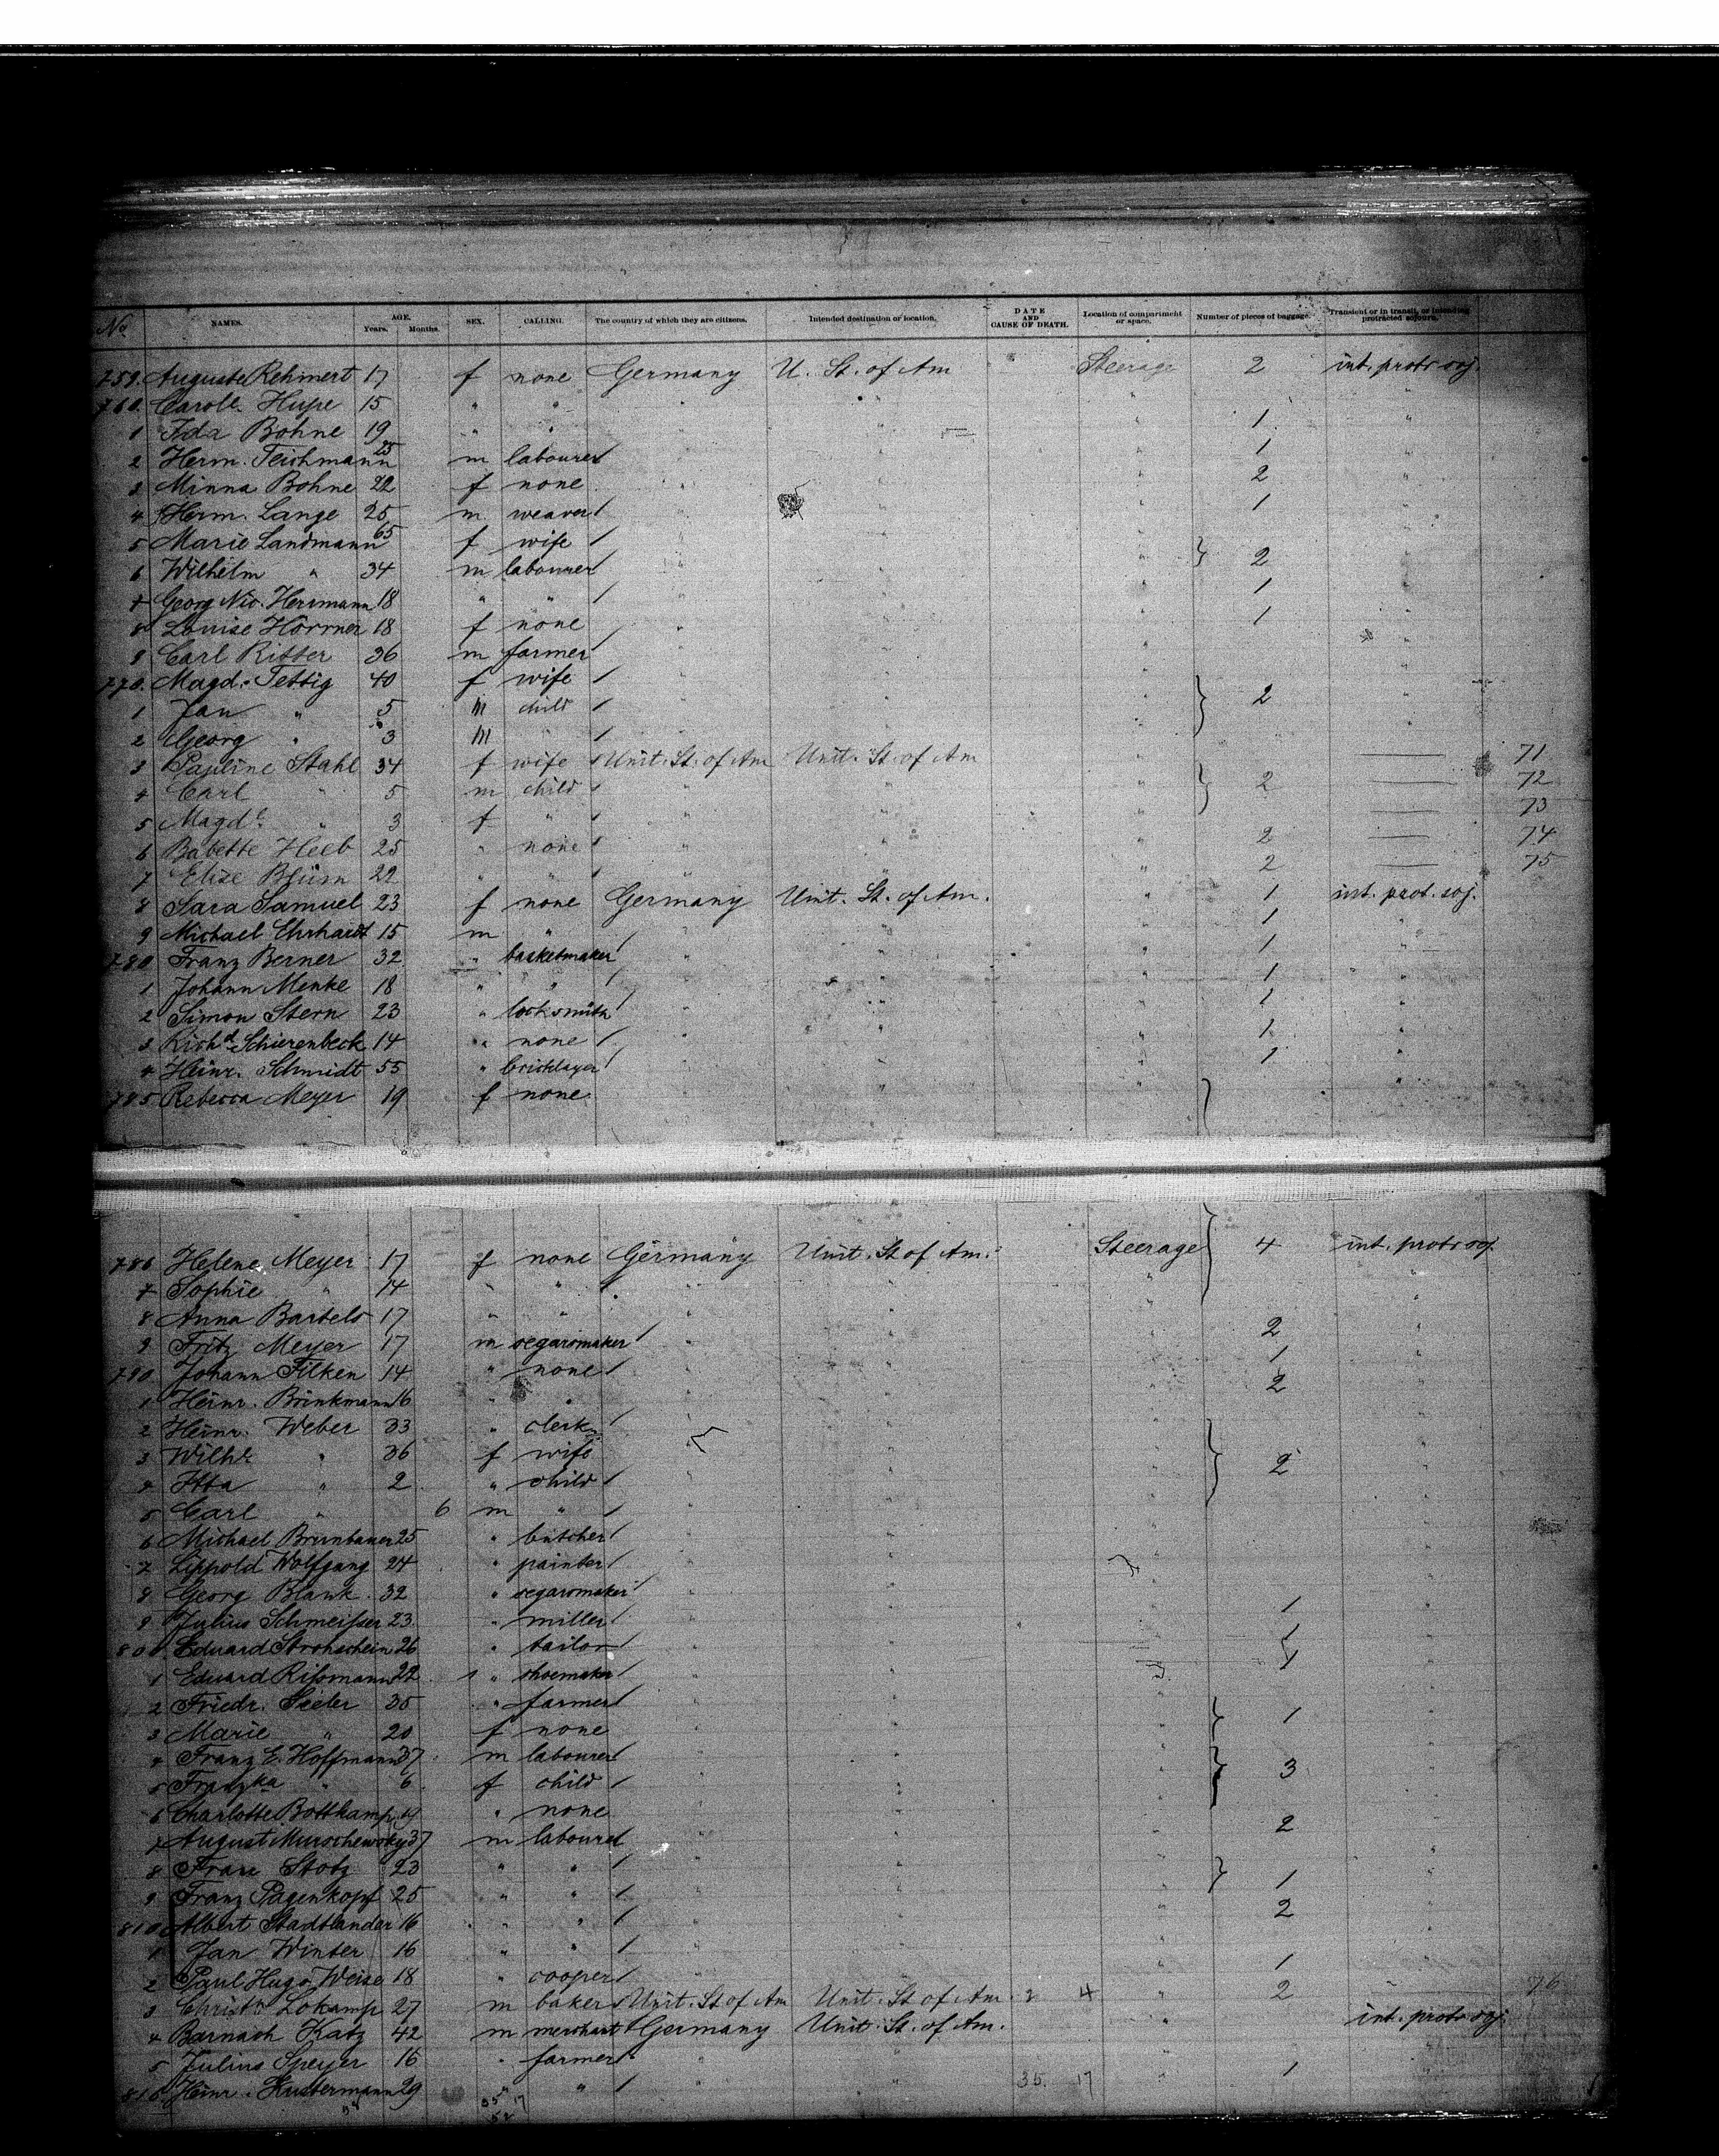 No NAMES. AGE. Years. Months. SEX. CALLING. The country of which they are citizens. Intended destination or location. DATE AND CAUSE OF DEATH. Location of compartment or space. Number of pieces of baggage. Transient or in transit, or intending protracted sojourn.
759. Auguste Rehmert 17 f none Germany U. St. of Am Steerage 2 int. protr soj.
760. Carole. Hupe 15 " " " " " "
1 Ida Bohne 19 " " " " " 1 "
2 Herm. Teichmann 25 m labourer " " " 1 "
3 Minna Bohne 22 f none " " " 2 "
4 Herm. Lange 25 m weaver " " " 1 "
5 Marie Landmann 65 f wife " " " "
6 Wilhelm " 34 m labourer " " " 2 "
7 Georg Nic. Herrmann 18 " " " " " 1 "
8 Louise Hörrner 18 f none " " " 1 "
9 Carl Ritter 36 m farmer " " " "
770. Magd. Fettig 40 f wife " " " "
1 Jan " 5 m child " " " 2 "
2 Georg " 3 m " " " " "
3 Pauline Stahl 34 f wife Unit. St. of Am Unit. St. of Am " 71
4 Carl " 5 m child " " " 2 72
5 Magde. " 3 f " " " " 73
6 Babette Heeb 25 " none " " " 2 74
7 Elise Blüm 22 " " " " " 2 75
8 Sara Samuel 23 f none Germany Unit. St. of Am. " 1 int. prot. soj.
9 Michael Ehrhardt 15 m " " " " 1 "
780 Franz Berner 32 " basketmaker " " " 1 "
1 Johann Menke 18 " " " " " 1 "
2 Simon Stern 23 " locksmith " " " 1 "
3 Richd. Schierenbeck 14 " none " " " 1 "
4 Heinr. Schmidt 55 " bricklayer " " " 1 "
785 Rebecca Meyer 19 f none " " " "
786 Helene Meyer 17 f none Germany Unit. St of Am. Steerage 4 int. protr soj.
7 Sophie " 14 " " " " " "
8 Anna Bartels 17 " " " " " 2 "
9 Fritz Meyer 17 m segarsmaker " " " 1 "
790. Johann Filken 14 " none " " " 2 "
1 Heinr. Brinkmann 16 " " " " " "
2 Heinr. Weber 33 " clerk " " " "
3 Wilhe " 36 f wife " " " 2 "
4 Itta " 2 " child " " " "
5 Carl " 6 m " " " " "
6 Michael Brunbauer 25 " butcher " " " "
7 Lippold Wolfgang 24 " painter " " " "
8 Georg Blank 32 " segarsmaker " " " 1 "
9 Julius Schmeisser 23 " miller " " " 1 "
800 Eduard Strohschein 26 " tailor " " " 1 "
1 Eduard Rissmann 22 " shoemaker " " " "
2 Friedr. Seeler 35 " farmer " " " 1 "
3 Marie " 20 f none " " " "
4 Franz E. Hoffmann 37 m labourer " " " 3 "
5 Franzka " 6 f child " " " "
6 Charlotte Bottkamp 19 " none " " " 2 "
7 August Murschewsky 37 m labourer " " " "
8 Franz Stotz 23 " " " " " 1 "
9 Franz Pagenkopf 25 " " " " " 2 "
810 Albert Stadtlander 16 " " " " " "
1 Jan Winter 16 " " " " " 1 "
2 Paul Hugo Weise 18 " cooper " " " 2 "
3 Christn Lokamp 27 m baker Unit. St of Am Unit. St of Am. 2 4 " 76
4 Barnach Katz 42 m merchant Germany Unit. St. of Am. " int. protr soj.
5 Julius Speyer 16 " farmer " " 1 "
816 Heinr. Kustermann 29 " " " " 35. 17 "
35 17
52